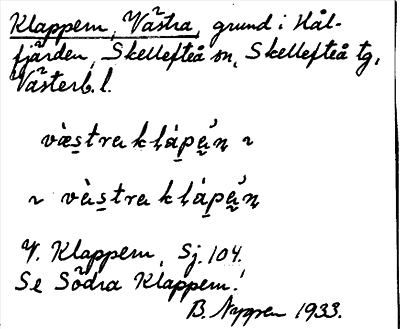 Klappern, Västra, grund i Hål-
fjärden, Skellefteå sn, Skellefteå tg,
Västerb. l.
vä̀s̠tra kḷáp̠ạ̈́ṇ ~
~ và̀s̠tra kḷáp̠ạ̈́ṇ
V. Klappern, Sj. 104.
Se Södra Klappern!
B. Nygren 1933.